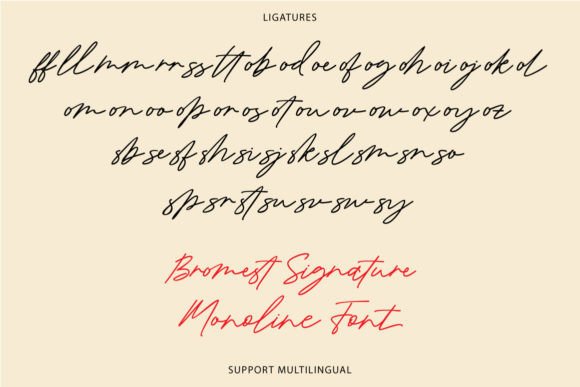 LIGATURES
ff ll mm rr ss tt ob od oe of og oh oi oj ok ol
om on oo op or os ot ou ov ow ox oy oz
sb se sf sh si sj sk sl sm sn so
sp sr st su sv sw sy
Bromest Signature
Monoline Font
SUPPORT MULTILINGUAL